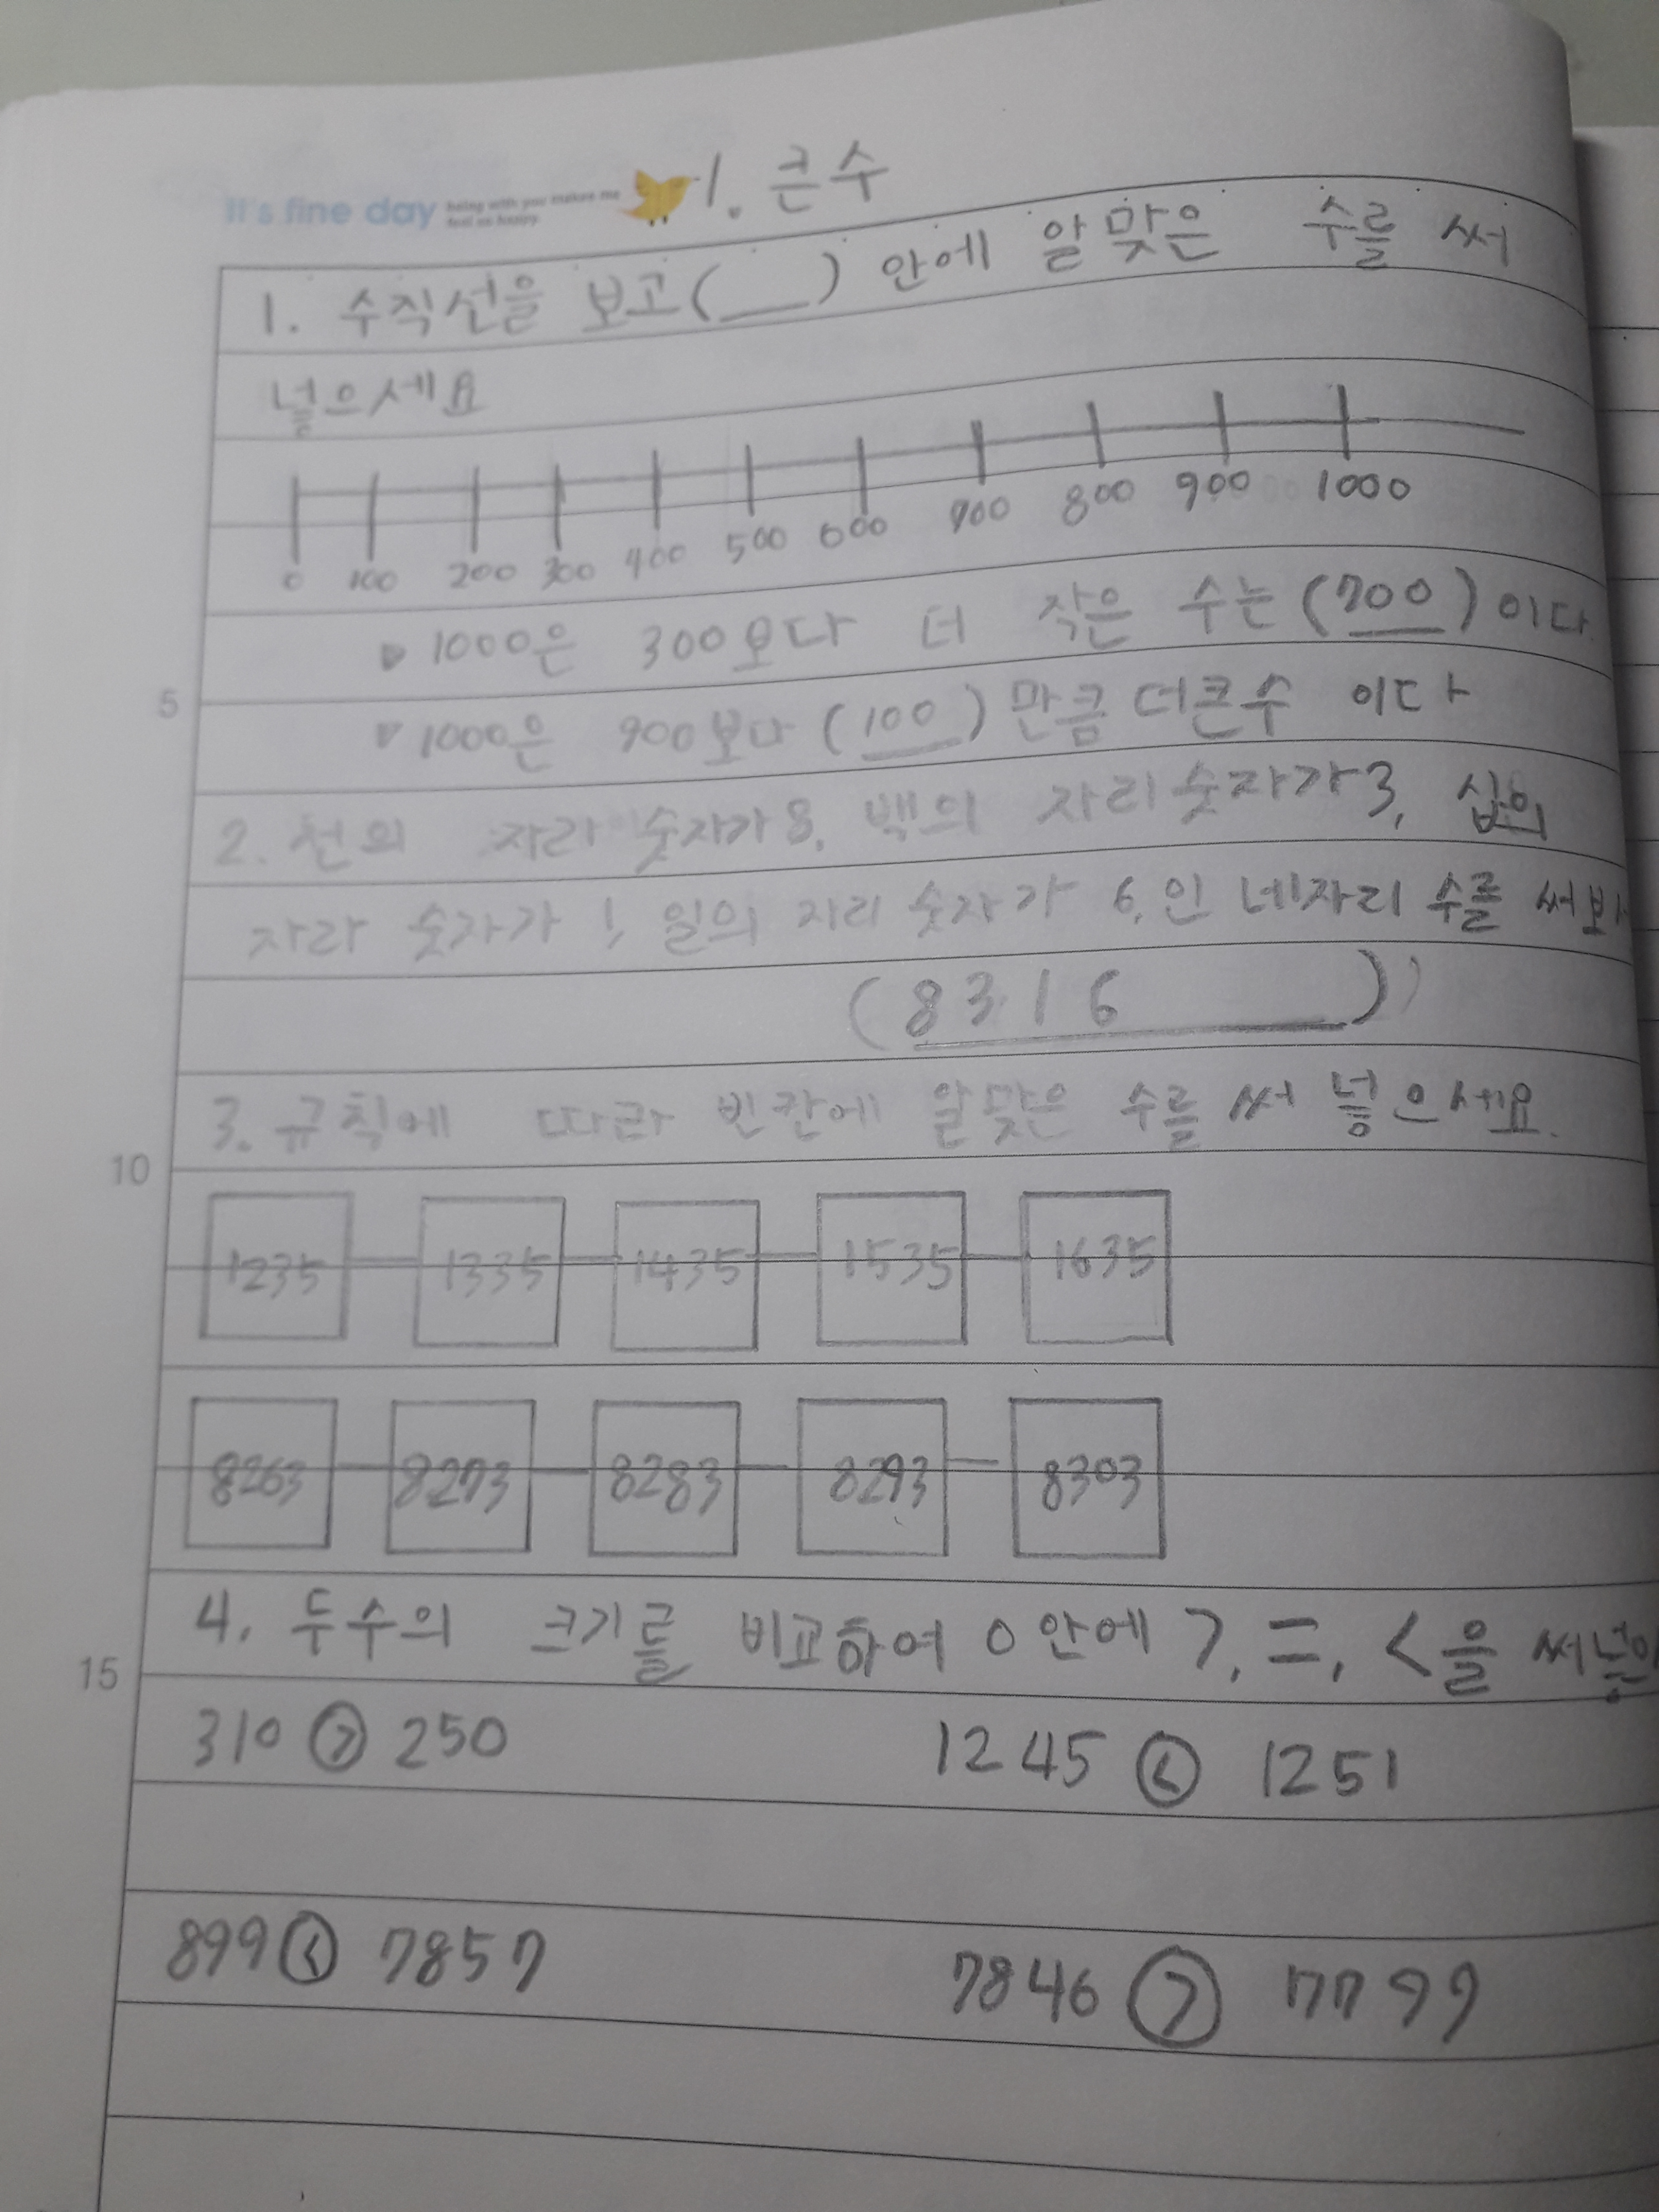 It's fine day being with you makes me feel so happy. 1. 큰수
1. 수직선을 보고(__) 안에 알맞은 수를 써
넣으세요
0 100 200 300 400 500 600 700 800 900 1000
▷ 1000은 300보다 더 작은 수는 (700) 이다
5
▷ 1000은 900보다 (100) 만큼 더큰수 이다
2. 천의 자리 숫자가 8, 백의 자리숫자가 3, 십의
자리 숫자가 1, 일의 자리 숫자가 6, 인 네자리 수를 써보
(8316)
3. 규칙에 따라 빈칸에 알맞은 수를 써 넣으세요.
10
1235 1335 1435 1535 1635
8263 8273 8283 8293 8303
4. 두수의 크기를 비교하여 0안에 >, =, <을 써넣으
15
310 > 250 1245 < 1251
899 < 7857 7846 > 7799